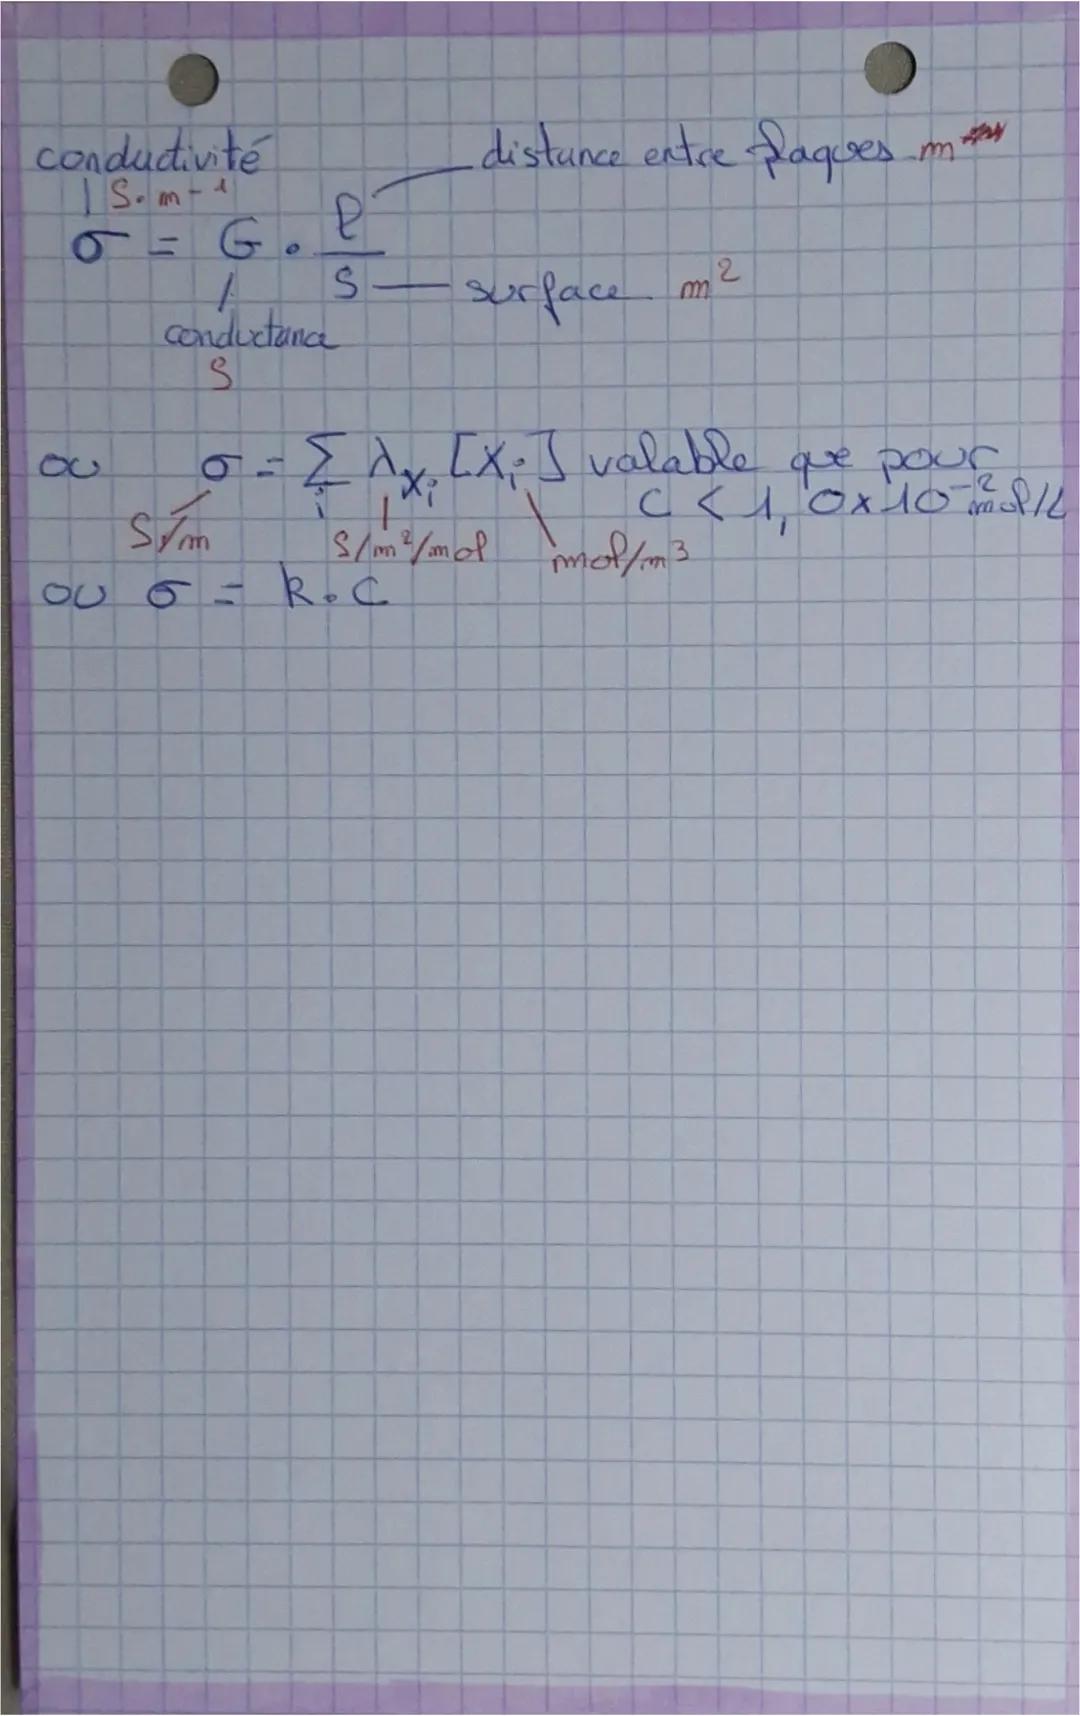 conductivité
distance entre plaques m
S.m-1
σ = G . l/S
surface m²
conductance
S
ou σ = Σ i λXi [Xi] valable que pour
C < 1,0x10⁻² mol/L
S/m
S/m²/mol
mol/m³
ou σ = k.C